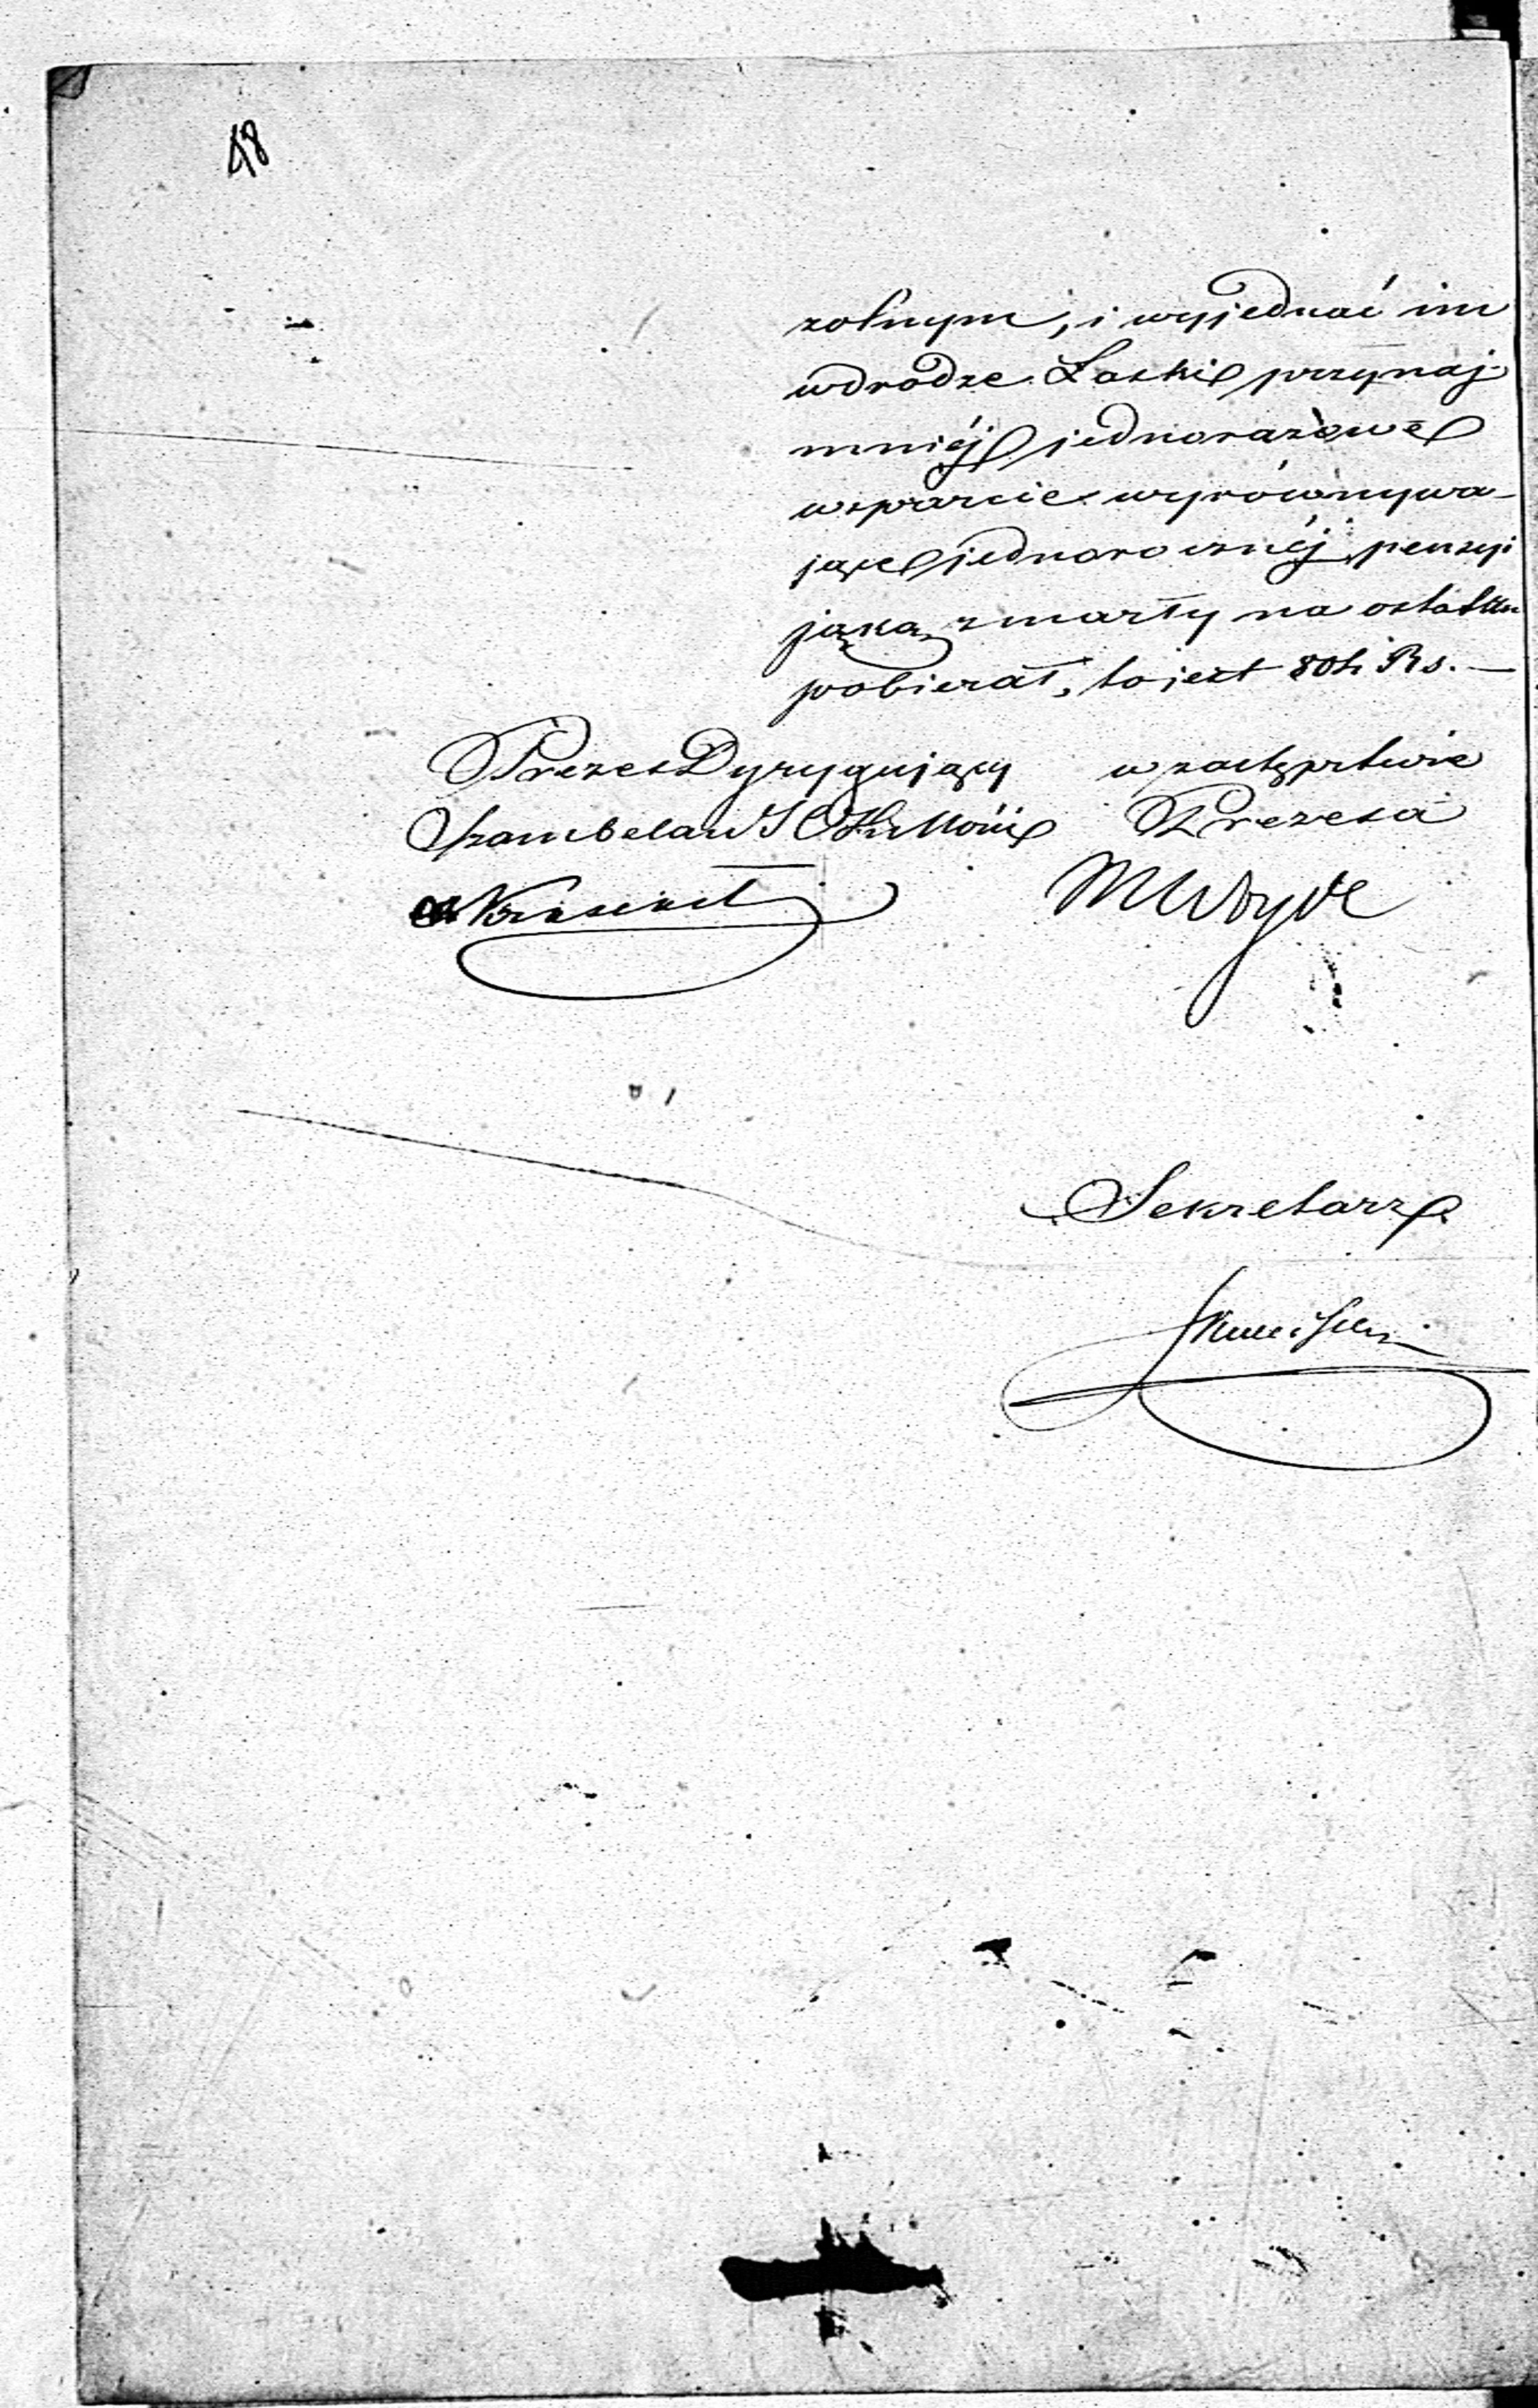 48
rolnym, i wyjednać im
w drodze Łaski przynaj-
mniéj jednorazowe
wsparcie wyrównywa-
jące jednorocznéj pensyi
jaką zmarły na ostatku
pobierał, to jest Rs. —
Prezes Dyrygujący
Szambelan J C K Mości
w zastępstwie
Prezesa
Sekretarz